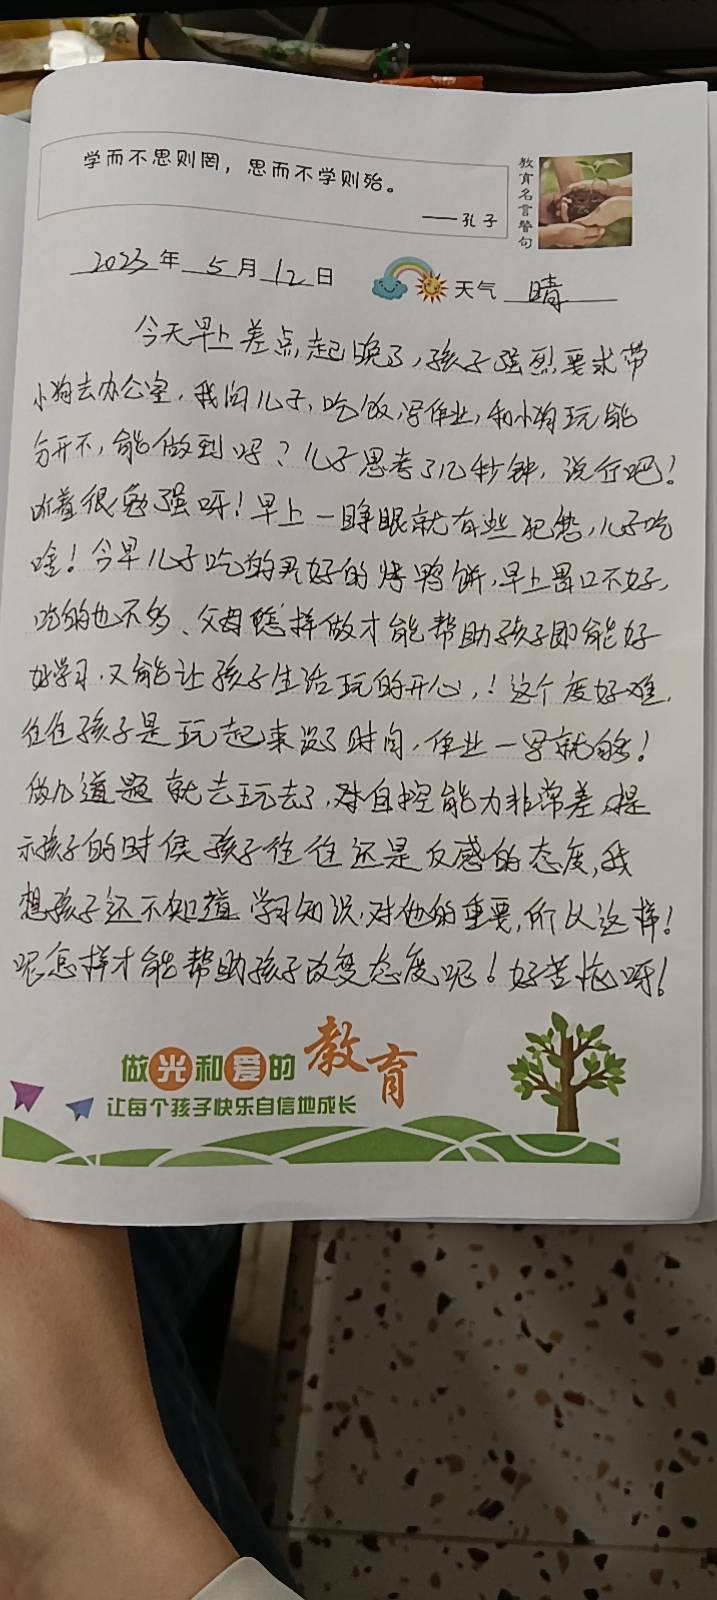 学而不思则罔，思而不学则殆。
——孔子
教育名言警句
2023年5月12日
天气 晴
今天早上差点起晚了，孩子强烈要求带
小狗去办公室，我问儿子，吃饭，写作业，和小狗玩能
分开不，能做到吗？儿子思考了几秒钟，说行吧！
听着很勉强呀！早上一睁眼就有些犯愁，儿子吃
啥！今早儿子吃的买好的烤鸭饼，早上胃口不好，
吃的也不多、父母怎样做才能帮助孩子即能好
好学习，又能让孩子生活玩的开心，！这个度好难，
往往孩子是玩起来没了时间，作业一写就够！
做几道题就去玩去了，对自控能力非常差，提
示孩子的时候孩子往往还是反感的态度，我
想孩子还不知道学习知识，对他的重要，所以这样！
呢怎样才能帮助孩子改变态度呢！好苦恼呀！
做光和爱的教育
让每个孩子快乐自信地成长